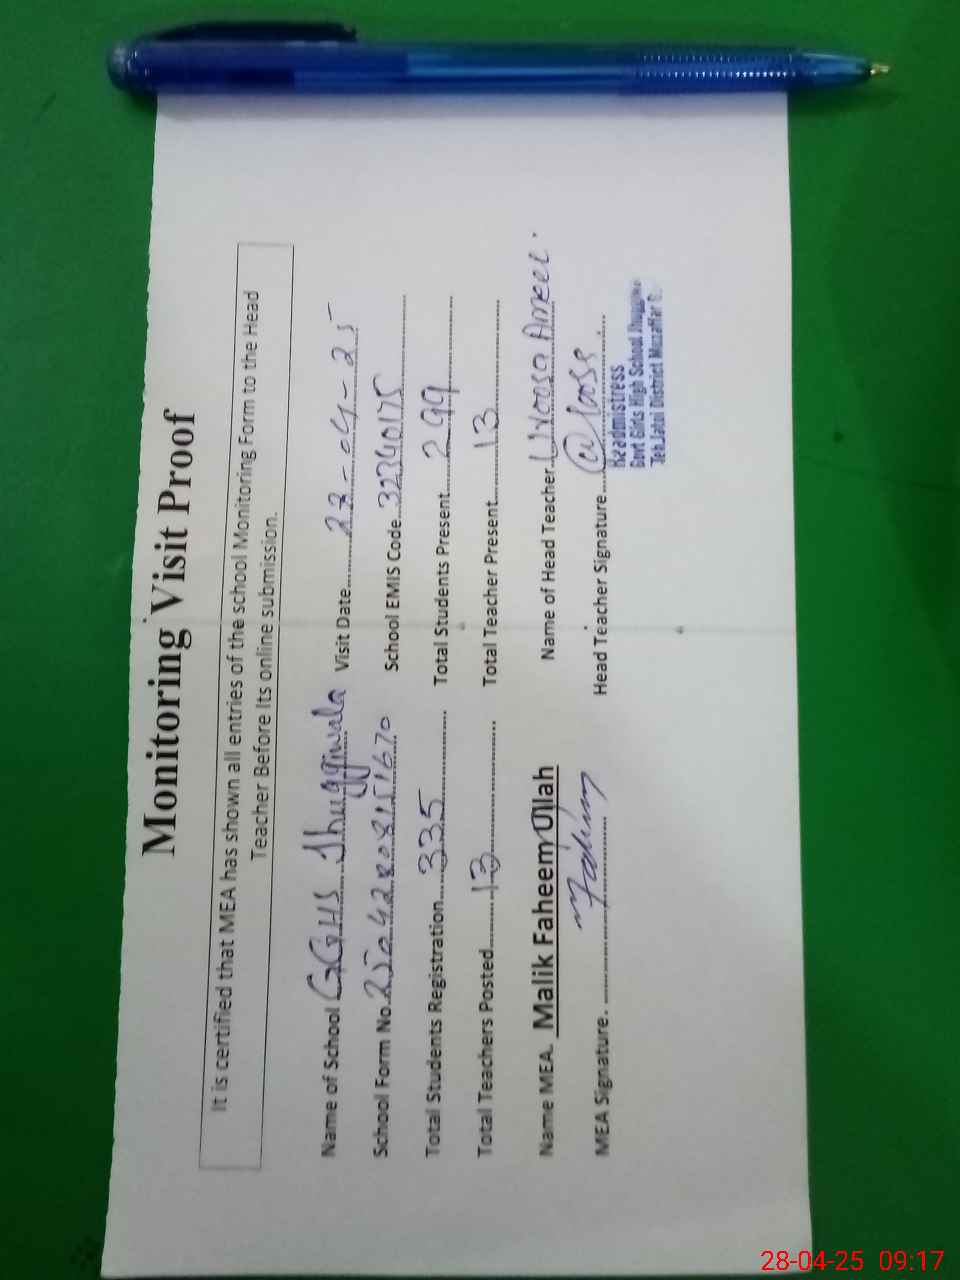 Monitoring Visit Proof
It is certified that MEA has shown all entries of the school Monitoring Form to the Head
Teacher Before Its online submission.
Name of School GGHS Jhuggiwala Visit Date -04-25
School Form No. School EMIS Code 32340175
Total Students Registration 335 Total Students Present 299
Total Teachers Posted 13 Total Teacher Present 13
Name MEA. Malik Faheem Ullah Name of Head Teacher
MEA Signature. Head Teacher Signature
Headmistress
Govt Girls High School
Teh Jatoi District Muzaffar G.
28-04-25 09:17